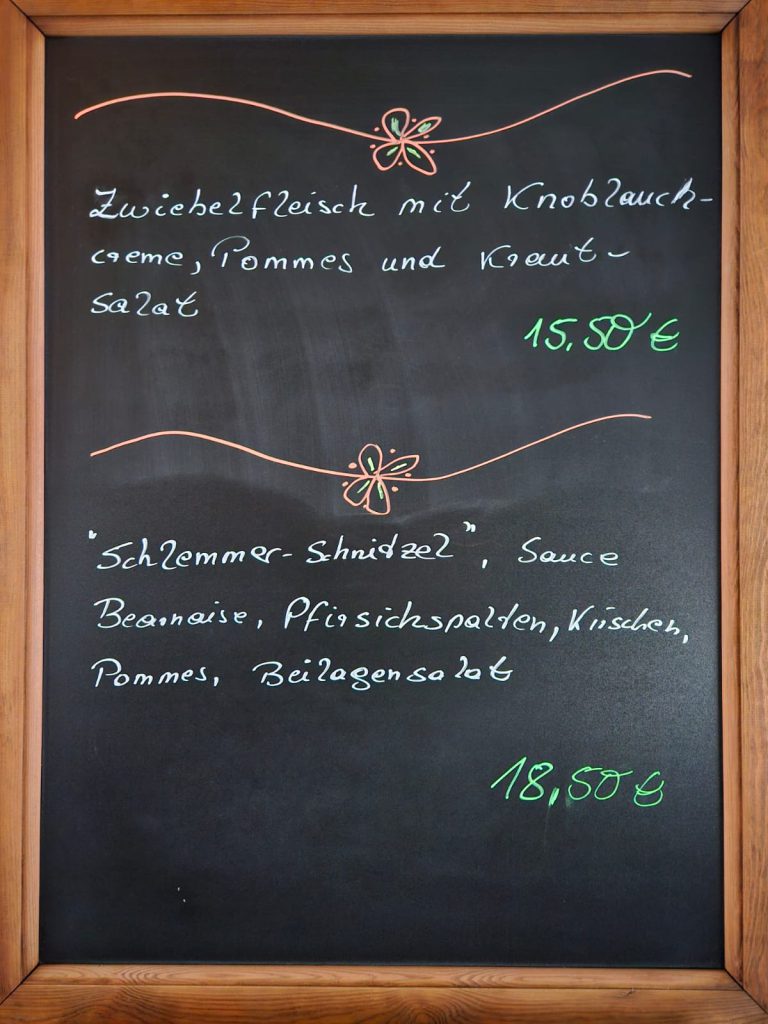 Zwiebelfleisch mit Knoblauch-
creme, Pommes und Kraut-
salat
15.50 €
"Schlemmer-Schnitzel", Sauce
Bearnaise, Pfirsichspalten, Kirschen,
Pommes, Beilagensalat
18,50 €